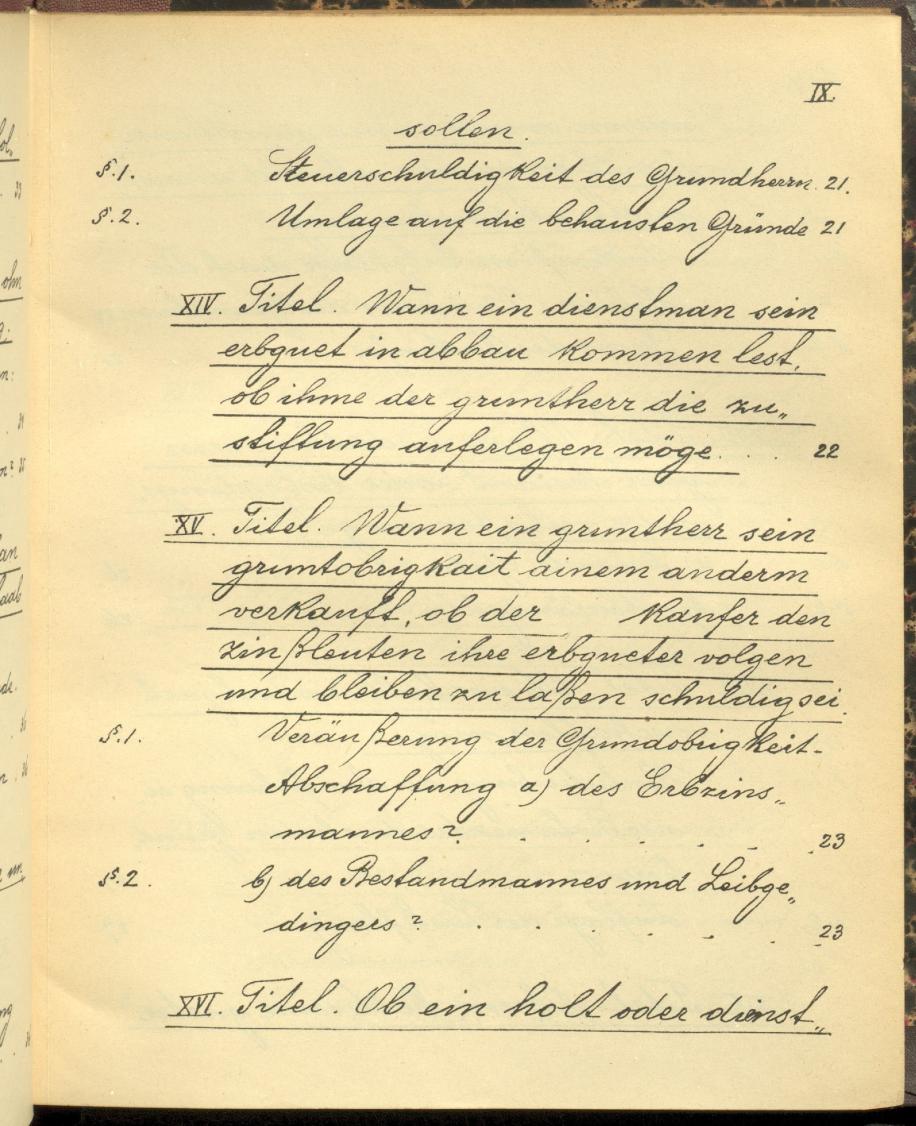 IX.
sollen.
§.1. Steuerschuldigkeit des Grundherrn. 21.
§.2. Umlage auf die behausten Gründe 21
XIV. Titel. Wann ein dienstman sein
erbguet in abbau kommen lest,
ob ihme der gruntherr die zu„
stiftung auferlegen möge . . . 22
XV. Titel. Wann ein gruntherr sein
gruntobrigkait ainem anderm
verkauft, ob der Kaufer den
zinßleuten ihre erbgueter volgen
und bleiben zu laßen schuldig sei.
§.1. Veräußerung der Grundobrigkeit-
Abschaffung a) des Erbzins„
mannes? . . . . . . 23
§.2. b) des Bestandmannes und Leibge„
dingers? . . . . . . 23
XVI. Titel. Ob ein holt oder dienst„